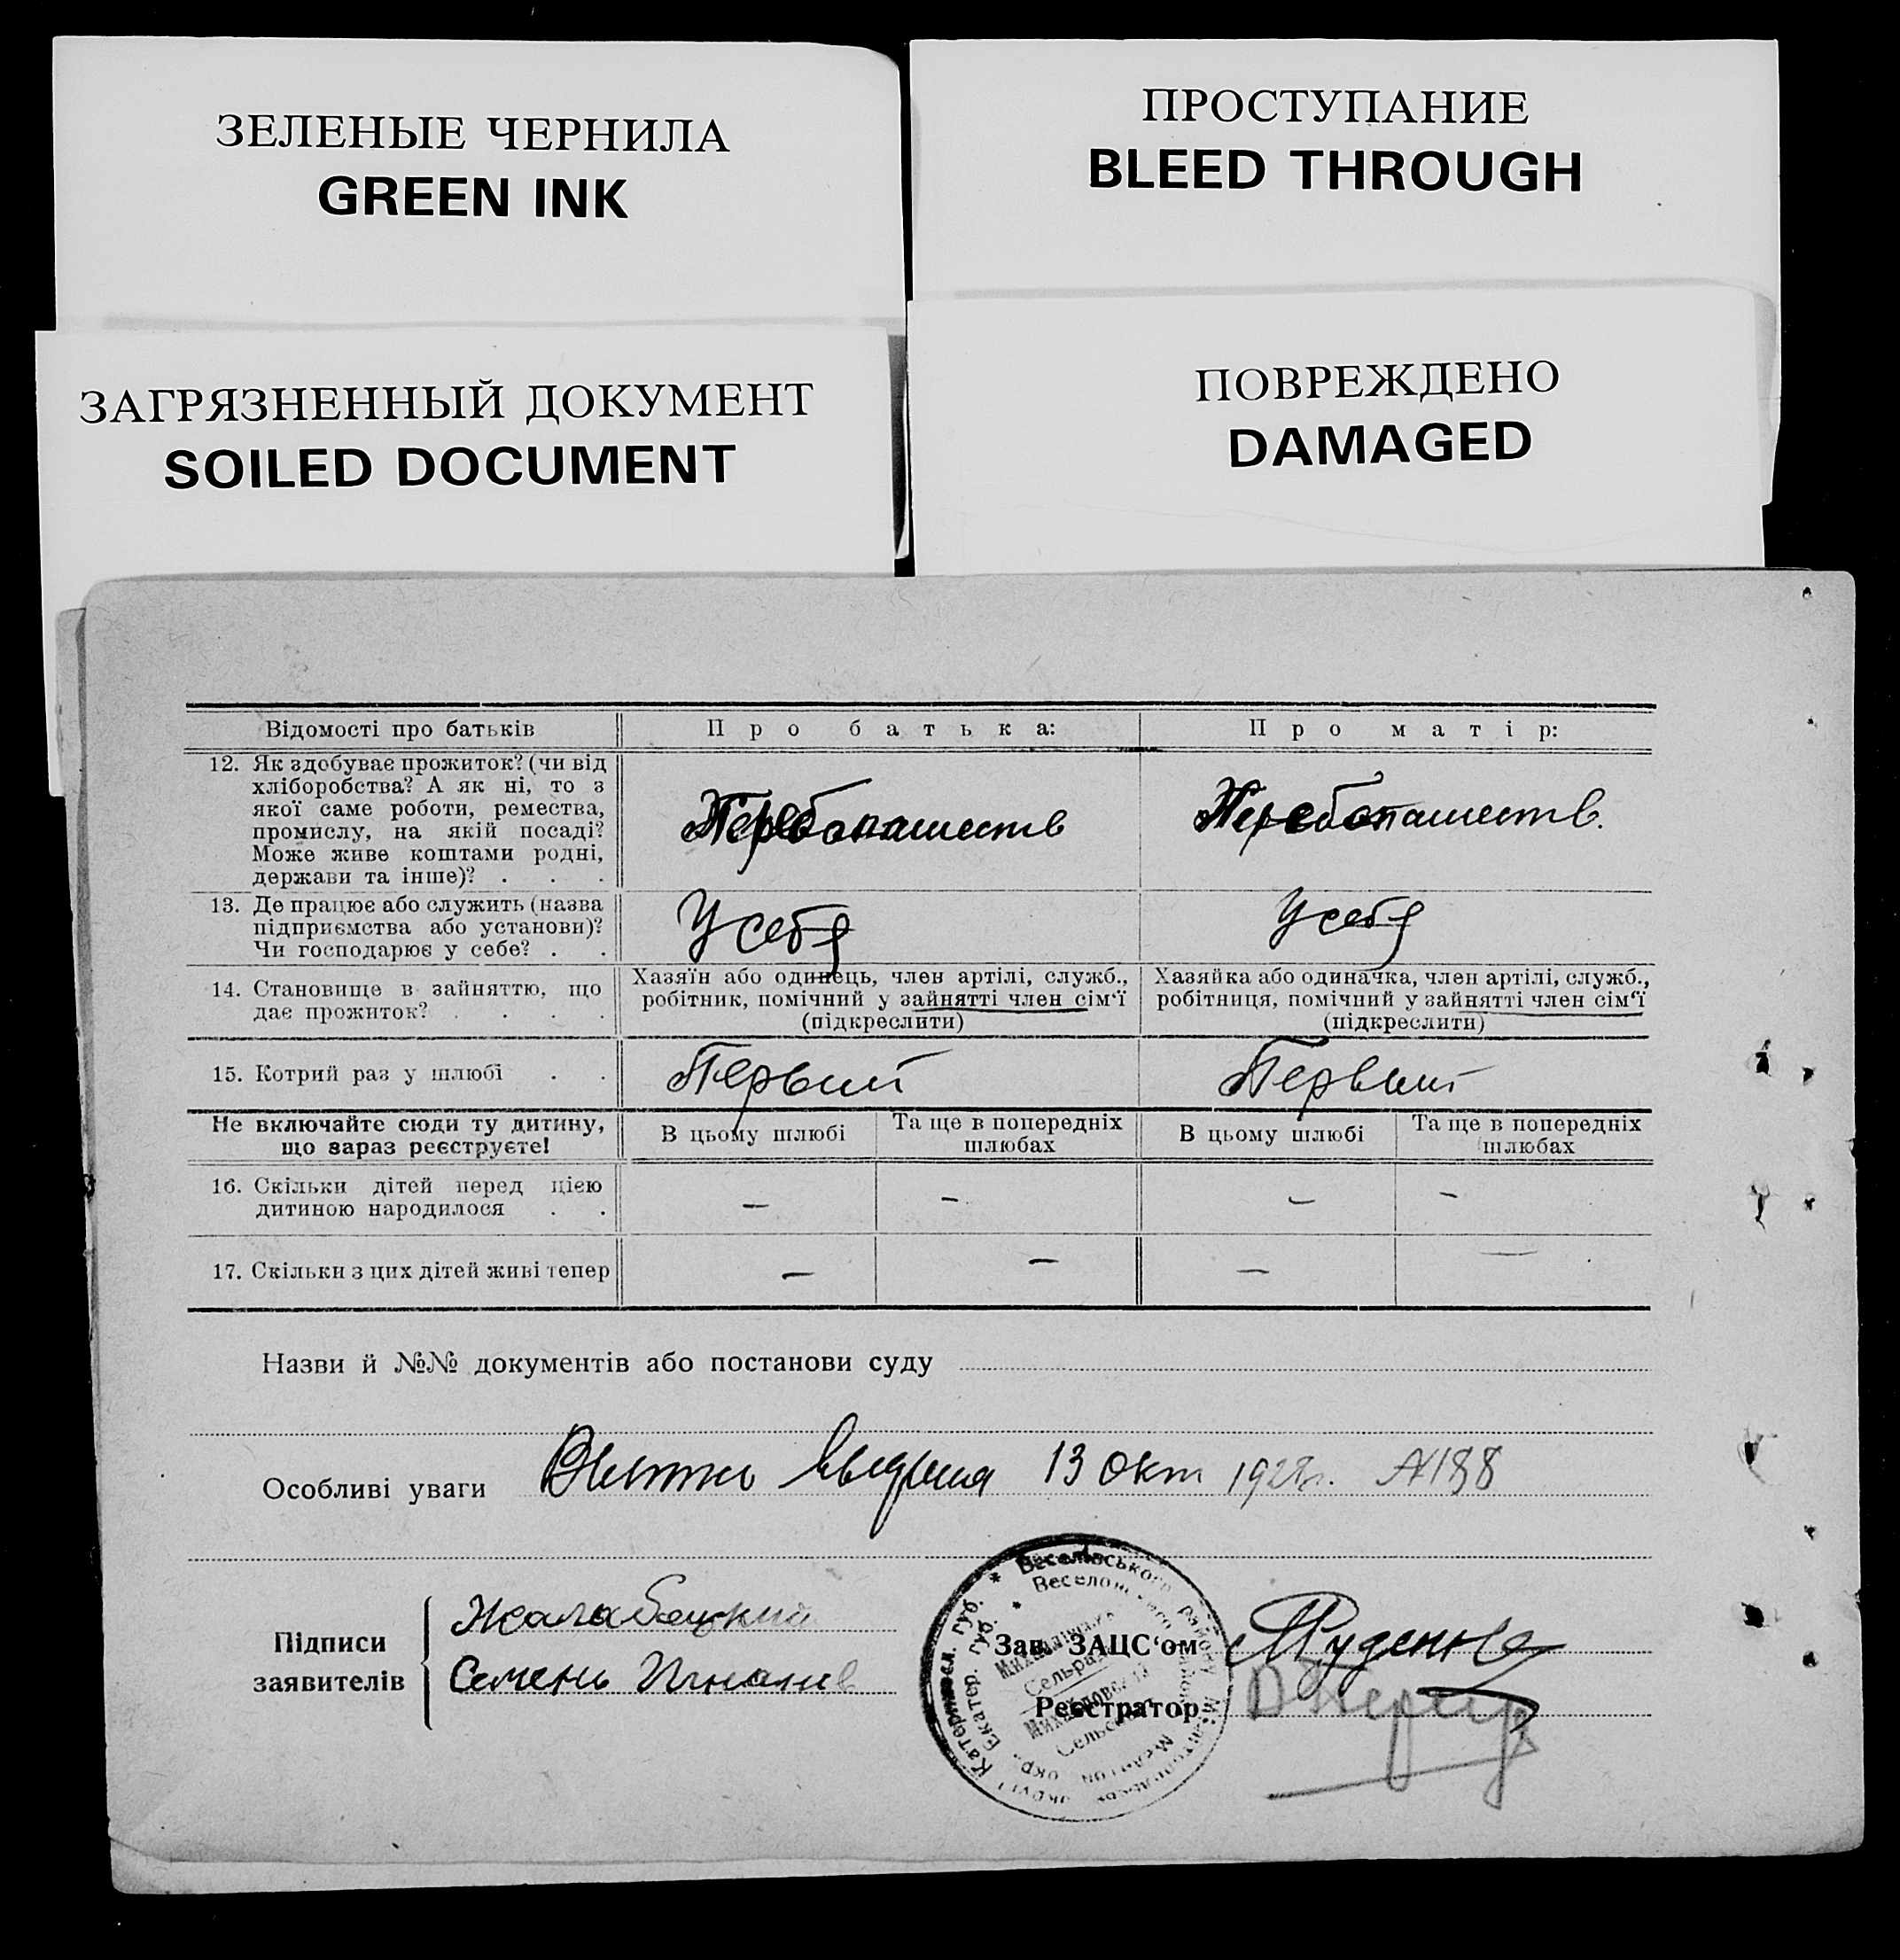 ЗЕЛЕНЫЕ ЧЕРНИЛА
GREEN INK
ПРОСТУПАНИЕ
BLEED THROUGH
ЗАГРЯЗНЕННЫЙ ДОКУМЕНТ
SOILED DOCUMENT
ПОВРЕЖДЕНО
DAMAGED
Відомості про батьків
Про батька:
Про матір:
12. Як здобуває прожиток? (чи від
хліборобства? А як ні, то з
якої саме роботи, ремества,
промислу, на якій посаді?
Може живе коштами родні,
держави та інше)? . . .
13. Де працює або служить (назва
підприємства або установи)?
Чи господарює у себе? . .
У себя
У себя
14. Становище в зайняттю, що
дає прожиток? . . . .
Хазяїн або одинець, член артілі, служб.,
робітник, помічний у зайнятті член сім‘ї
(підкреслити)
Хазяйка або одиначка, член артілі, служб.,
робітниця, помічний у зайнятті член сім‘ї
(підкреслити)
15. Котрий раз у шлюбі . .
Первый
Первый
Не включайте сюди ту дитину,
що зараз реєструєте!
В цьому шлюбі
Та ще в попередніх
шлюбах
В цьому шлюбі
Та ще в попередніх
шлюбах
16. Скільки дітей перед цією
дитиною народилося . .
— — — —
17. Скільки з цих дітей живі тепер
— — — —
Назви й №№ документів або постанови суду
Особливі уваги
13 окт
Підписи
заявителів
Семень
Зав. ЗАЦС‘ом
Реєстратор